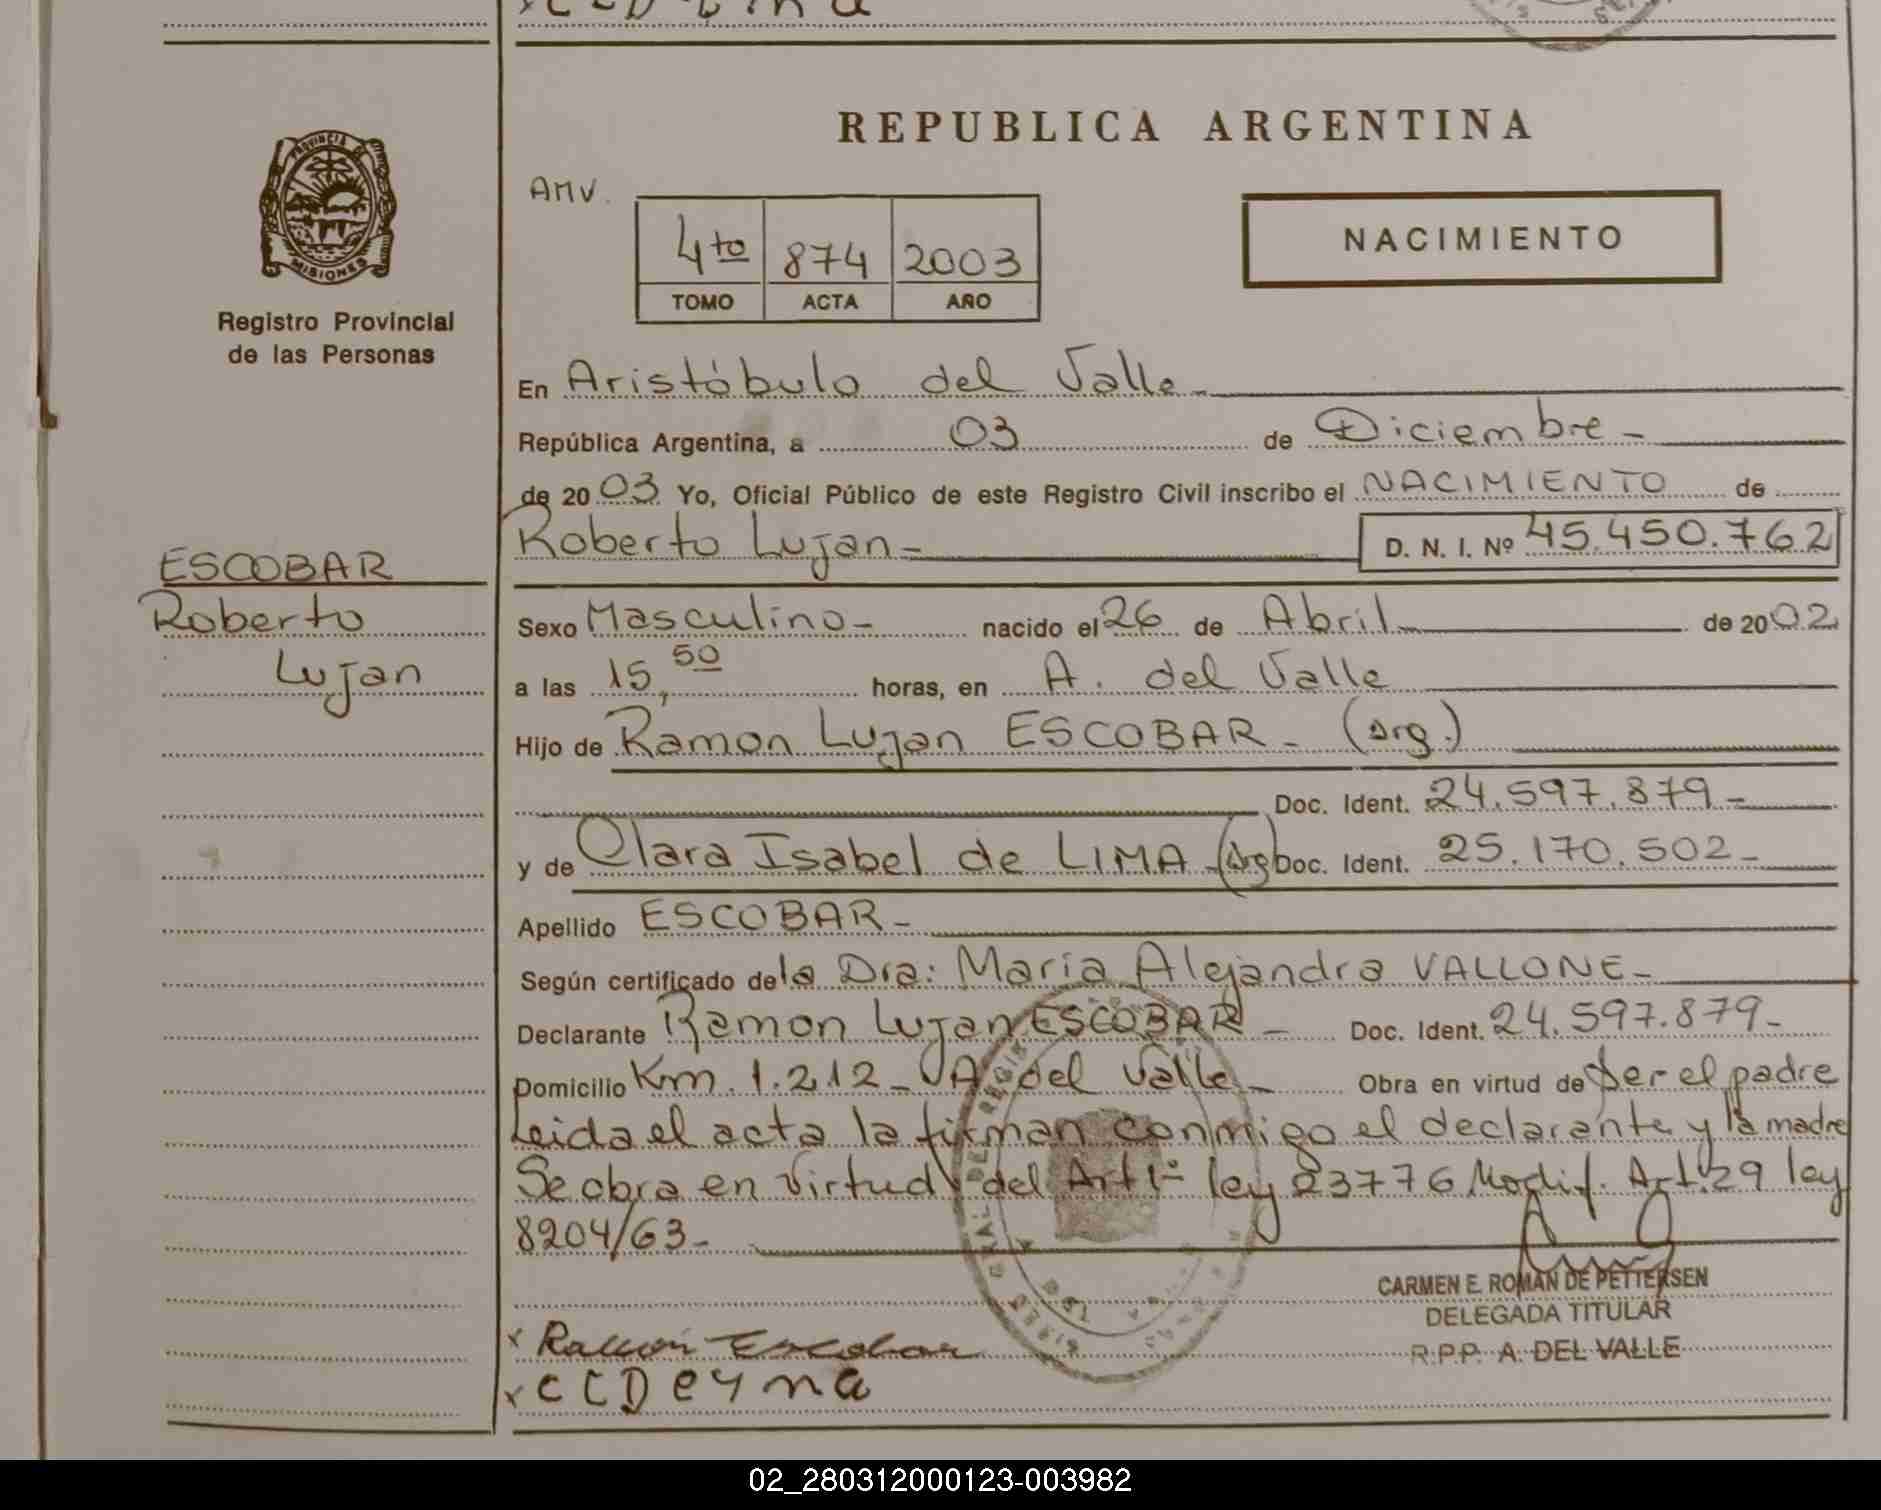 REPUBLICA ARGENTINA
PROVINCIA DE
MISIONES
Registro Provincial
de las Personas
AMV.
4to 874 2003
TOMO ACTA AÑO
NACIMIENTO
En Aristóbulo del Valle-
República Argentina, a 03 de Diciembre-
de 2003 Yo, Oficial Público de este Registro Civil inscribo el NACIMIENTO de
Roberto Lujan- D. N. I. Nº 45.450.762
ESCOBAR
Roberto
Lujan
Sexo Masculino- nacido el 26 de Abril de 2002
a las 15,50 horas, en A. del Valle
Hijo de Ramon Lujan ESCOBAR- (Arg.)
Doc. Ident. 24.597.879-
y de Clara Isabel de LIMA-(Arg) Doc. Ident. 25.170.502-
Apellido ESCOBAR-
Según certificado de la Dra: María Alejandra VALLONE-
Declarante Ramon Lujan ESCOBAR- Doc. Ident. 24.597.879-
Domicilio Km. 1.212- A. del Valle- Obra en virtud de Ser el padre
Leida el acta la firman conmigo el declarante y la madre
Se obra en virtud del Art 1º ley 23776 Modif. Art. 29 ley
8204/63-
CARMEN E. ROMAN DE PETTERSEN
DELEGADA TITULAR
R.P.P. A. DEL VALLE
x Ramon Escobar
02_280312000123-003982